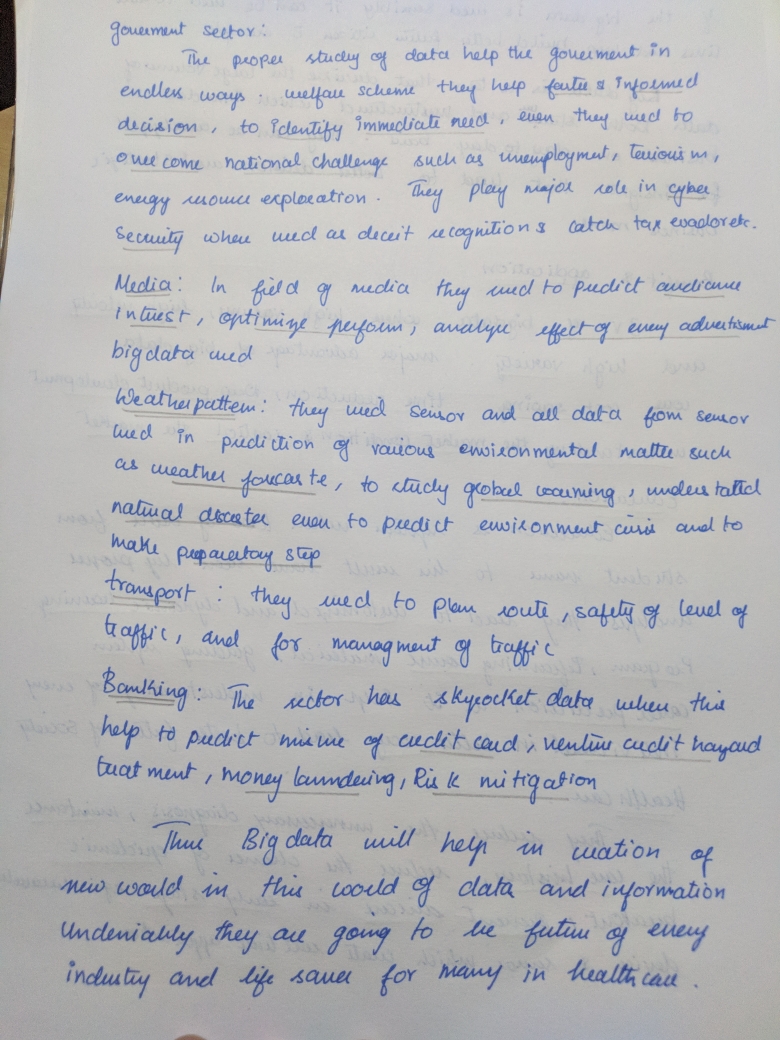 gouerment sector:
The proper study of data help the gouerment in
endless ways. welfare scheme they help faster & informed
decision, to identify immediate need, even they used to
overcome national challenge such as unemployment, terrorism,
energy resource exploration. They play major role in cyber
security where used as deceit recognition & catch tax evador etc.
Media: In field of media they used to predict audiance
intrest, optimize perform, analyze effect of every advertisment
bigdata used
Weather pattern: they used sensor and all data from sensor
used in prediction of various environmental matter such
as weather forecaste, to study global warming, understatted
natural disaster even to predict environment crisis and to
make preparatory step
transport: they used to plan route, safety of level of
traffic, and for managment of traffic
Banking: The sector has skyrocket data when this
help to predict misuse of credit card, venture credit hazard
treatment, money laundering, Risk mitigation
Thus Big data will help in creation of
new world in this world of data and information
Undeniably they are going to be future of every
industry and life saver for many in healthcare.